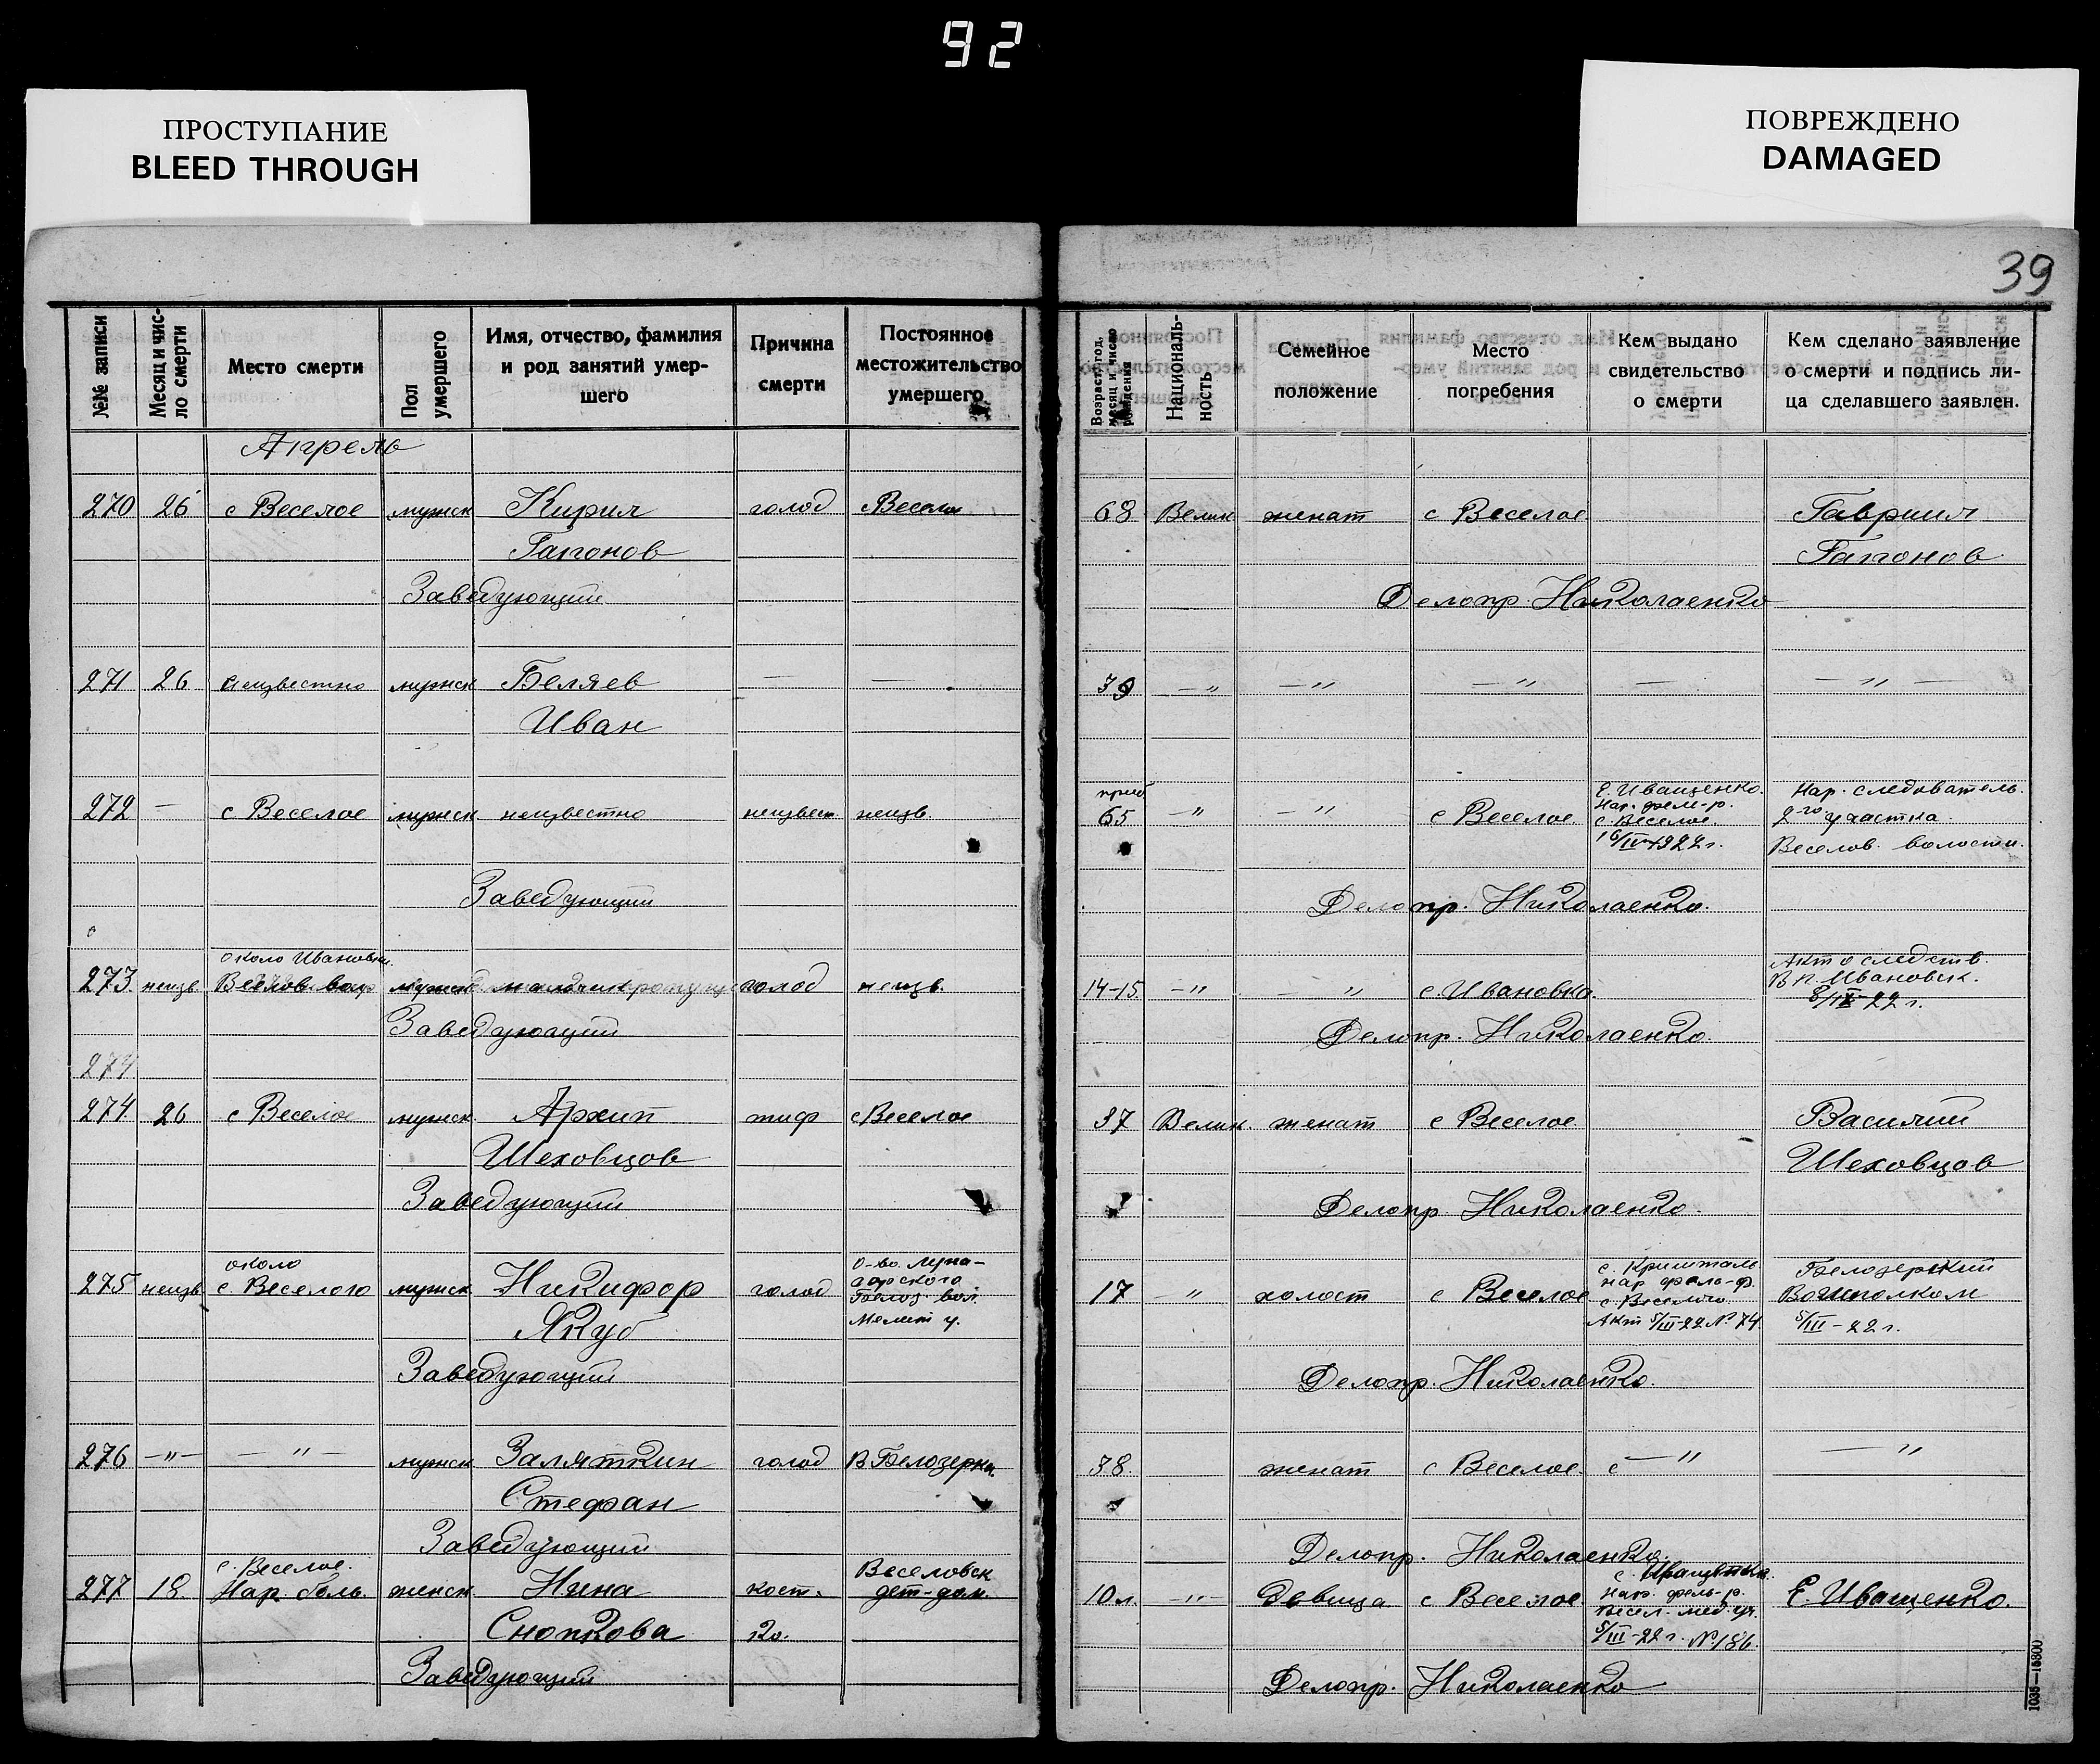 92
ПРОСТУПАНИЕ
BLEED THROUGH
ПОВРЕЖДЕНО
DAMAGED
39
№№ записи
Месяц и число смерти
Место смерти
Пол умершего
Имя, отчество, фамилия и род занятий умершего
Причина смерти
Постоянное местожительство умершего
Возраст, год, месяц и число рождения
Национальность
Семейное положение
Место погребения
Кем выдано свидетельство о смерти
Кем сделано заявление о смерти и подпись лица сделавшего заявлен.
Апрель
270 26 с Веселое мужск Кирил голод с Веселое 68 Велик женат с Веселое Гавриил
Гапонов Гапонов
Заведующий Делопр. Николаенко
271 26 неизвестно мужск Беляев — — 39 —〃 —〃 —〃 — —〃—
Иван
272 — с Веселое мужск неизвестно неизвест неизв. приб. 65 —〃 —〃 с Веселое Е. Иващенко. Нар. следователь
Нар. фел-р. 2го участка
с. Веселое. Веселов. волости.
16/IV-1922 г.
Заведующий Делопр. Николаенко.
около Ивановки.
273 неизв. Веселов. вол. мужск голод неизв. 14-15. —〃 —〃 с. Ивановка. Акт о следств.
В п. Ивановск.
22 г.
Заведующий Делопр. Николаенко.
274
274. 26 с Веселое мужск. Архип тиф с Веселое 37 Велик. женат с Веселое Василий
Шеховцов Шеховцов
Заведующий Делопр. Николаенко.
275 неизв около с. Веселого мужск Никифор голод 17 —〃 холост с Веселое с. Кришталь Белозерский
Якуб Белоз. вол. нар. фель-р. Волисполком
Мелит у. с Веселого 5/III-22 г.
Акт 5/III-22 № 74
Заведующий Делопр. Николаенко.
276 —〃— —〃— мужск Заляткин голод В Белозерка. 38. женат с Веселое. с —〃 —〃
Стефан
Заведующий Делопр. Николаенко.
с. Веселое. Веселовск
277 18 Нар. боль. женск. Нина дет-дом. 10 л. —〃— девица с Веселое Нар. фель-р. Е. Иващенко.
Снопкова Весел. мед. уч.
5/III-22 г. № 186.
Заведующий Делопр. Николаенко
1035—15800